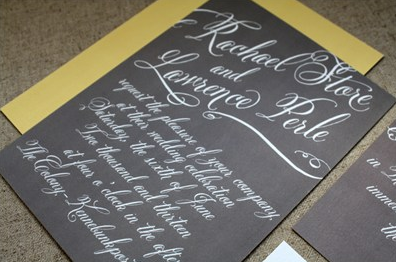 Rachael Store
and
Lawrence Perle
request the pleasure of your company
at their wedding celebration
Saturday, the sixth of June
Two thousand and thirteen
at four o'clock in the after
The Colony - Kennebunkpor
in
imme
at